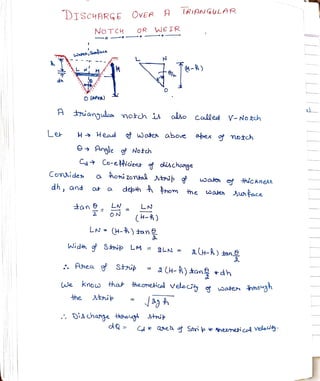 DISCHARGE OVER A TRIANGULAR
NOTCH OR WEIR
Water Surface
h
L N M
H
dh
O (APEX)
L N
θ/2
(H-h)
O
A triangular notch is also called V-Notch
Let H → Head of Water above apex of notch
θ → Angle of Notch
Cd → Co-efficient of discharge
Consider a horizontal strip of water of thickness
dh, and at a depth h from the water surface
tan θ/2 = LN/ON = LN/(H-h)
LN = (H-h) tan θ/2
Width of Strip LM = 2LN = 2(H-h) tan θ/2
∴ Area of Strip = 2(H-h) tan θ/2 * dh
We know that theoretical velocity of water through
the strip = √2gh
∴ Discharge through strip
dQ = Cd * area of Strip * theoretical velocity.